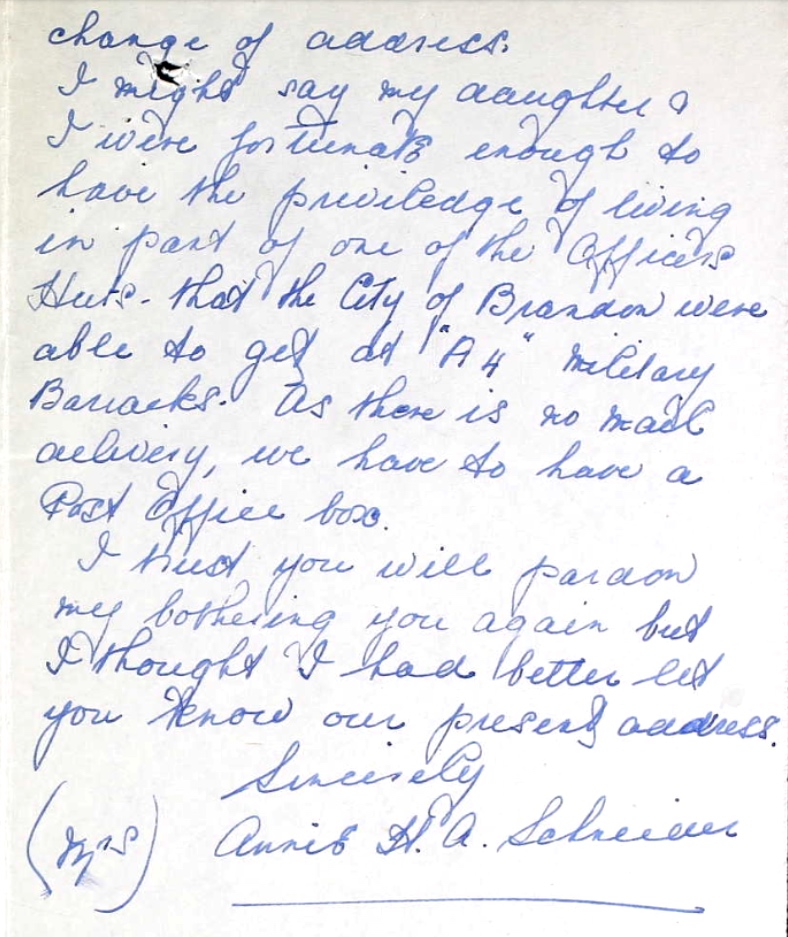 change of address.
I might say my daughter &
I were fortunate enough to
have the priviledge of living
in part of one of the Officers
Huts. that the City of Brandon were
able to get at "A4" Military
Barracks. As there is no mail
delivery, we have to have a
Post Office box.
I trust you will pardon
my bothering you again but
I thought I had better let
you know our present address.
Sincerely
(Mrs) Annie H. A. Schneider